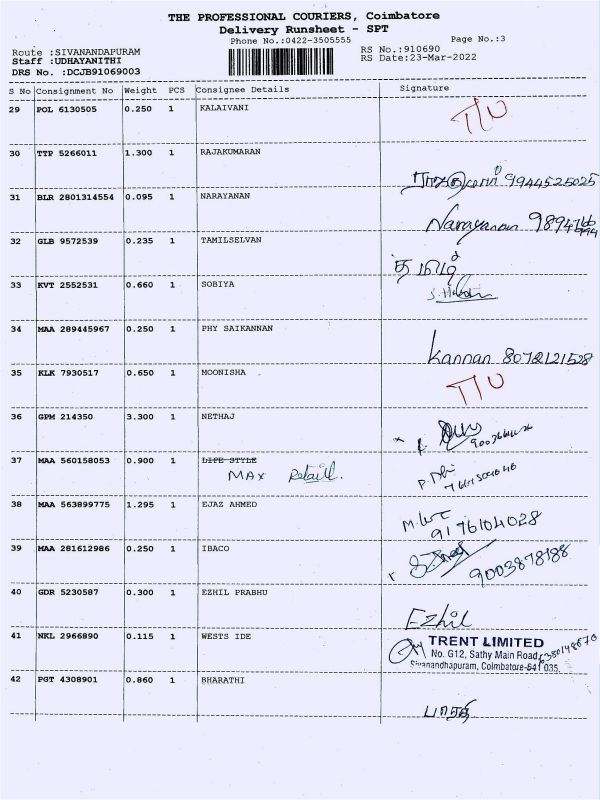 THE PROFESSIONAL COURIERS, Coimbatore
Delivery Runsheet - SPT
Phone No.:0422-3505555
Page No.:3
Route :SIVANANDAPURAM
Staff :UDHAYANITHI
DRS No. :DCJB91069003
RS No.:910690
RS Date:23-Mar-2022
S No Consignment No Weight PCS Consignee Details Signature
29 POL 6130505 0.250 1 KALAIVANI
T/U
30 TTP 5266011 1.300 1 RAJAKUMARAN
ராஜகுமாரன் 9944525025
31 BLR 2801314554 0.095 1 NARAYANAN
Narayanan
32 GLB 9572539 0.235 1 TAMILSELVAN
தமிழ்
33 KVT 2552531 0.660 1 SOBIYA
34 MAA 289445967 0.250 1 PHY SAIKANNAN
Kannan 8072121528
35 KLK 7930517 0.650 1 MOONISHA
T/U
36 GPM 214350 3.300 1 NETHAJ
37 MAA 560158053 0.900 1 LIFE STYLE
MAX Retail.
38 MAA 563899775 1.295 1 EJAZ AHMED
9176104028
39 MAA 281612986 0.250 1 IBACO
9003878188
40 GDR 5230587 0.300 1 EZHIL PRABHU
Ezhil
41 NKL 2966890 0.115 1 WESTS IDE
TRENT LIMITED
No. G12, Sathy Main Road,
Sivanandhapuram, Coimbatore-641 035.
6380148670
42 PGT 4308901 0.860 1 BHARATHI
பாரதி